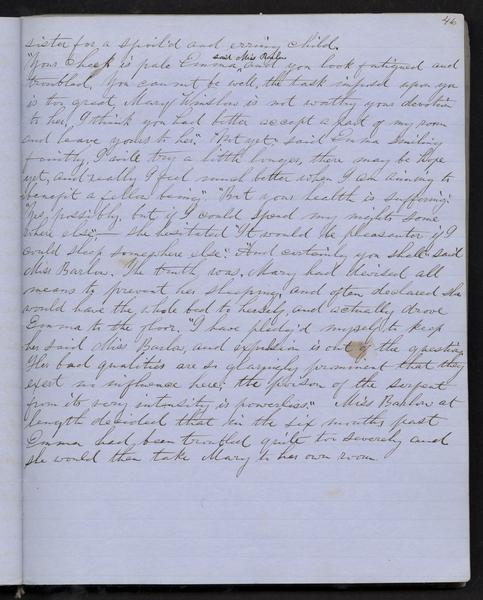 46
sister for a spoil'd and erring child.
said Miss Barlow
"Your cheek is pale Emma, and you look fatigued and
troubled. You can not be well, the task imposed upon you
is too great, Mary Winslow is not worthy your devotion
to her, I think you had better accept a part of my room
and leave yours to her". "Not yet," said Emma smiling
faintly, I will try a little longer, there may be hope
yet, and really I feel much better when I am aiming to
benefit a fellow being". "But your health is suffering."
"Yes, possibly, but if I could spend my nights some
where else",— she hesitated "It would be pleasanter if I
could sleep somewhere else". "And certainly you shall" said
Miss Barlow. The truth was, Mary had devised all
means to prevent her sleeping, and often declared she
would have the whole bed to herself, and actually drove
Emma to the floor. "I have pledg'd myself to keep
her said Miss Barlow, and expulsion is out of the question.
Her bad qualities are so glaringly prominent that they
exert no influence here, the poison of the serpent
from its very intensity is powerless." Miss Barlow at
length decided that in the six months past
Emma had been troubled quite too severely and
she would then take Mary to her own room.